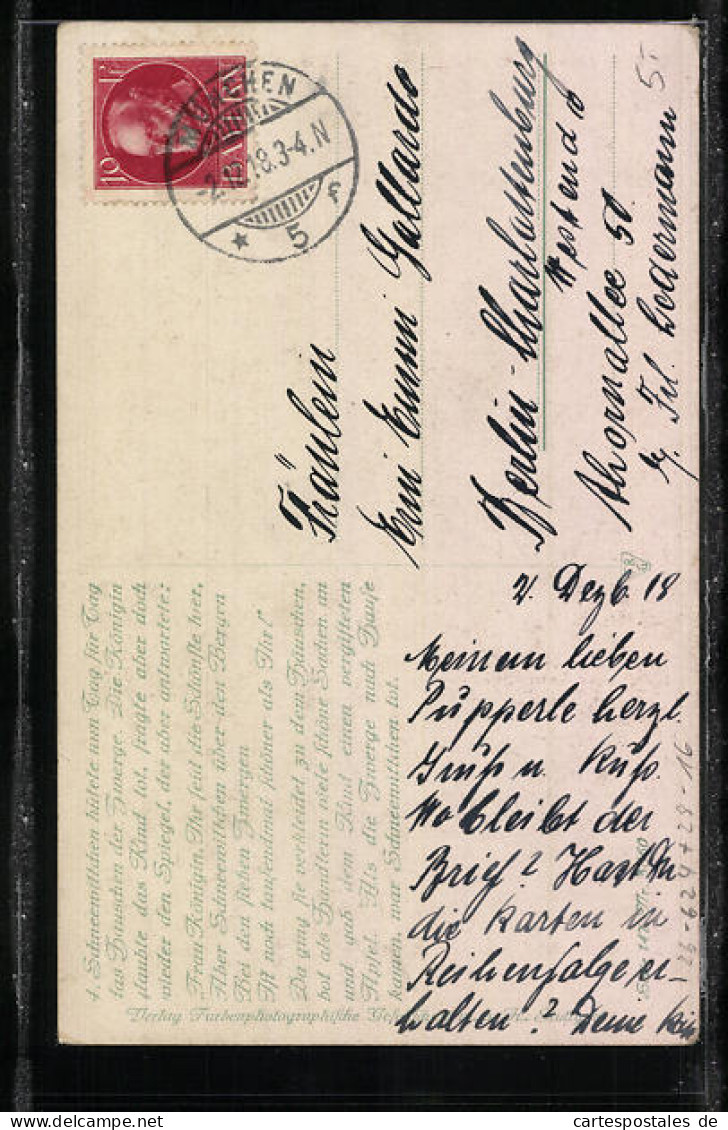 10 Pf
BAYERN
MÜNCHEN
-2.12.18.3-4.N
* 5 f
5.-
Fräulein
Erni Emmi Gallardo
Berlin-Charlottenburg
Westend
Ahornallee 50.
b. Frl. Ledermann
4. Schneewittchen hütete nun Tag für Tag
das Häuschen der Zwerge. Die Königin
glaubte das Kind tot, fragte aber doch
wieder den Spiegel, der aber antwortete:
„Frau Königin, Ihr seid die Schönste hier,
Aber Schneewittchen über den Bergen
Bei den sieben Zwergen
Ist noch tausendmal schöner als Ihr!“
Da ging sie verkleidet zu dem Häuschen,
bot als Händlerin viele schöne Sachen an
und gab dem Kind einen vergifteten
Apfel. Als die Zwerge nach Hause
kamen, war Schneewittchen tot.
Verlag Farbenphotographische
2. Dezb. 18
Meinem lieben
Pupperle herzl.
Gruß u. Kuß.
Wo bleibt der
Brief? Hast Du
die Karten in
Reihenfolge er-
halten? Deine
26-624+28-16
www.cartespostales.eu
cartespostales de